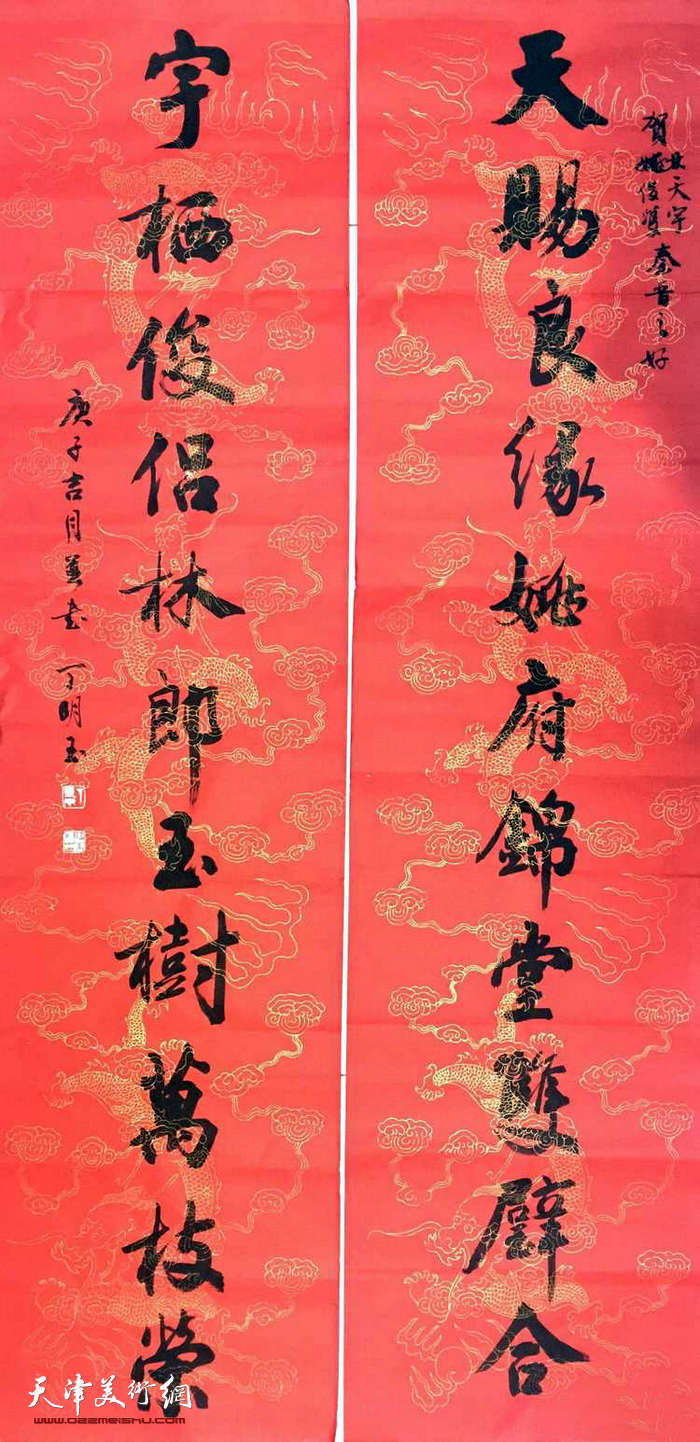 賀林天宇姚俊雙秦晋之好
天賜良缘姚府錦堂雙璧合
宇栖俊侣林郎玉樹萬枝榮
庚子吉月书 丁明玉
天津美術網
www.022meishu.com